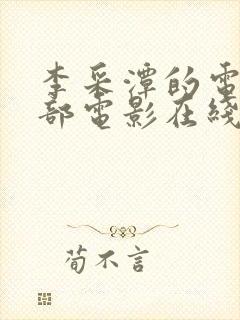 李采潭的電
部電影在綫
荀不言